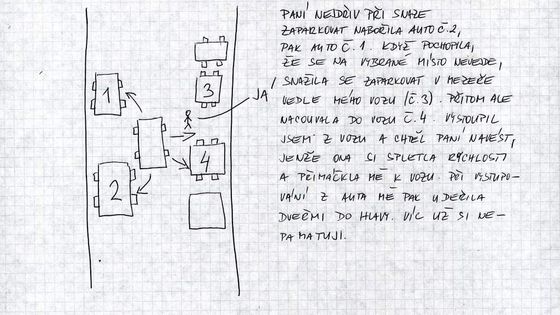 PANÍ NEJDŘÍV PŘI SNAZE
ZAPARKOVAT NABOŘILA AUTO Č. 2,
PAK AUTO Č. 1. KDYŽ POCHOPILA,
ŽE SE NA VYBRANÉ MÍSTO NEVEJDE,
SNAŽILA SE ZAPARKOVAT V MEZEŘE
VEDLE MÉHO VOZU (Č. 3). PŘITOM ALE
NACOUVALA DO VOZU Č. 4. VYSTOUPIL
JSEM Z VOZU A CHTĚL PANÍ NAVÉST,
JENŽE ONA SI SPLETLA RYCHLOSTI
A PŘIMÁČKLA MĚ K VOZU. PŘI VYSTUPO-
VÁNÍ Z AUTA MĚ PAK UDEŘILA
DVEŘMI DO HLAVY. VÍC UŽ SI NE-
PAMATUJI.
1
2
3
4
JÁ